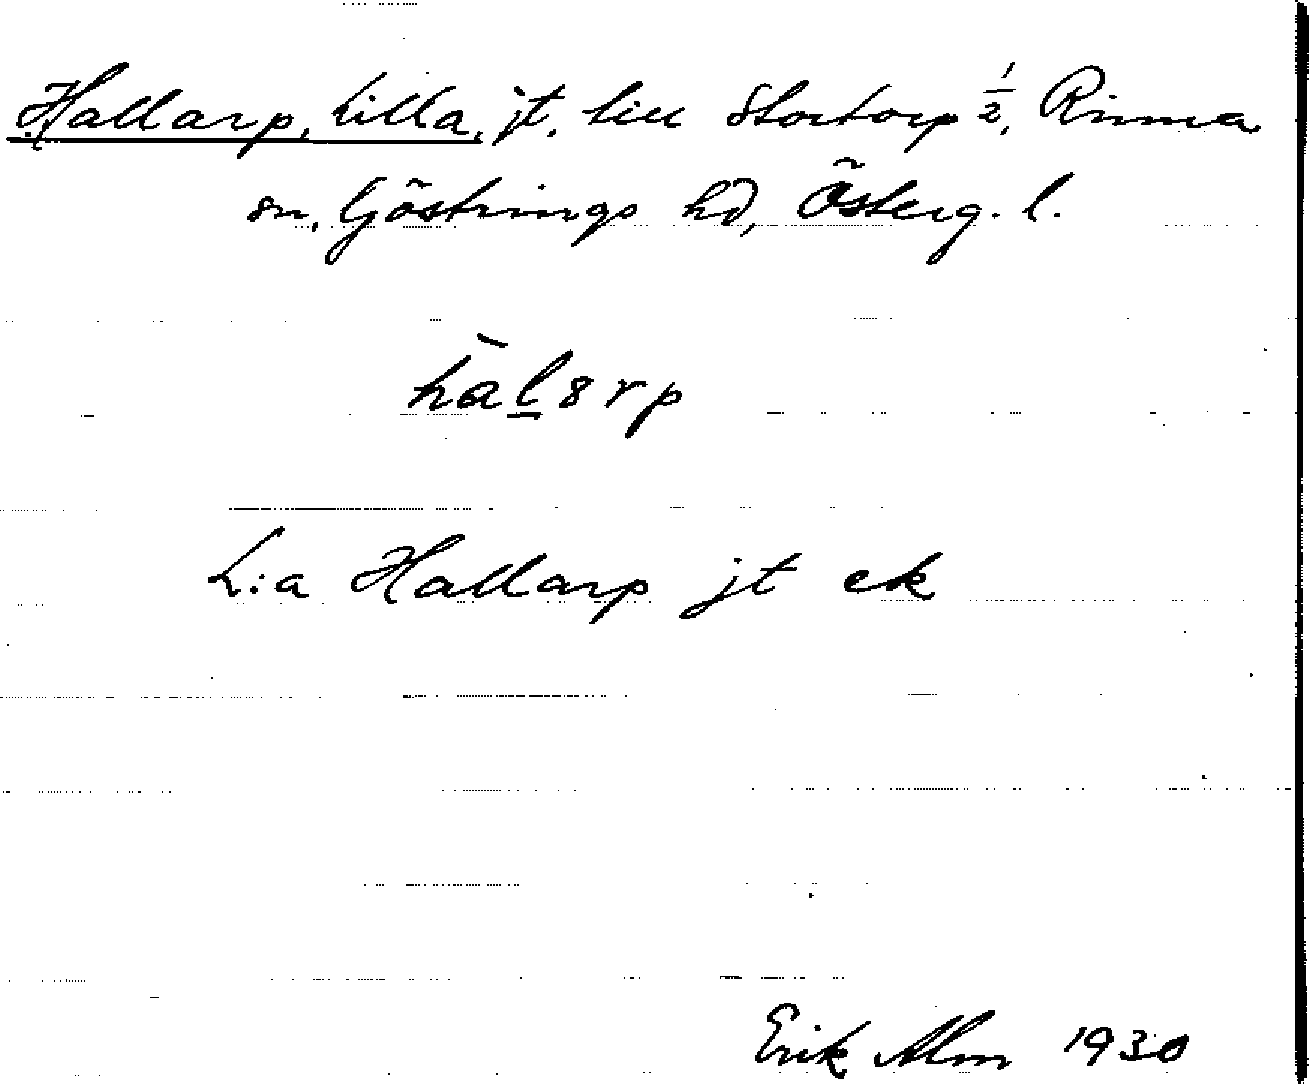 Hallarp, Lilla, jt. till Stortorp 1/2, Rinna
sn, Göstrings hd, Österg. l.
hàl̲ȣrp
L:a Hallarp jt ek
Erik Alm 1930